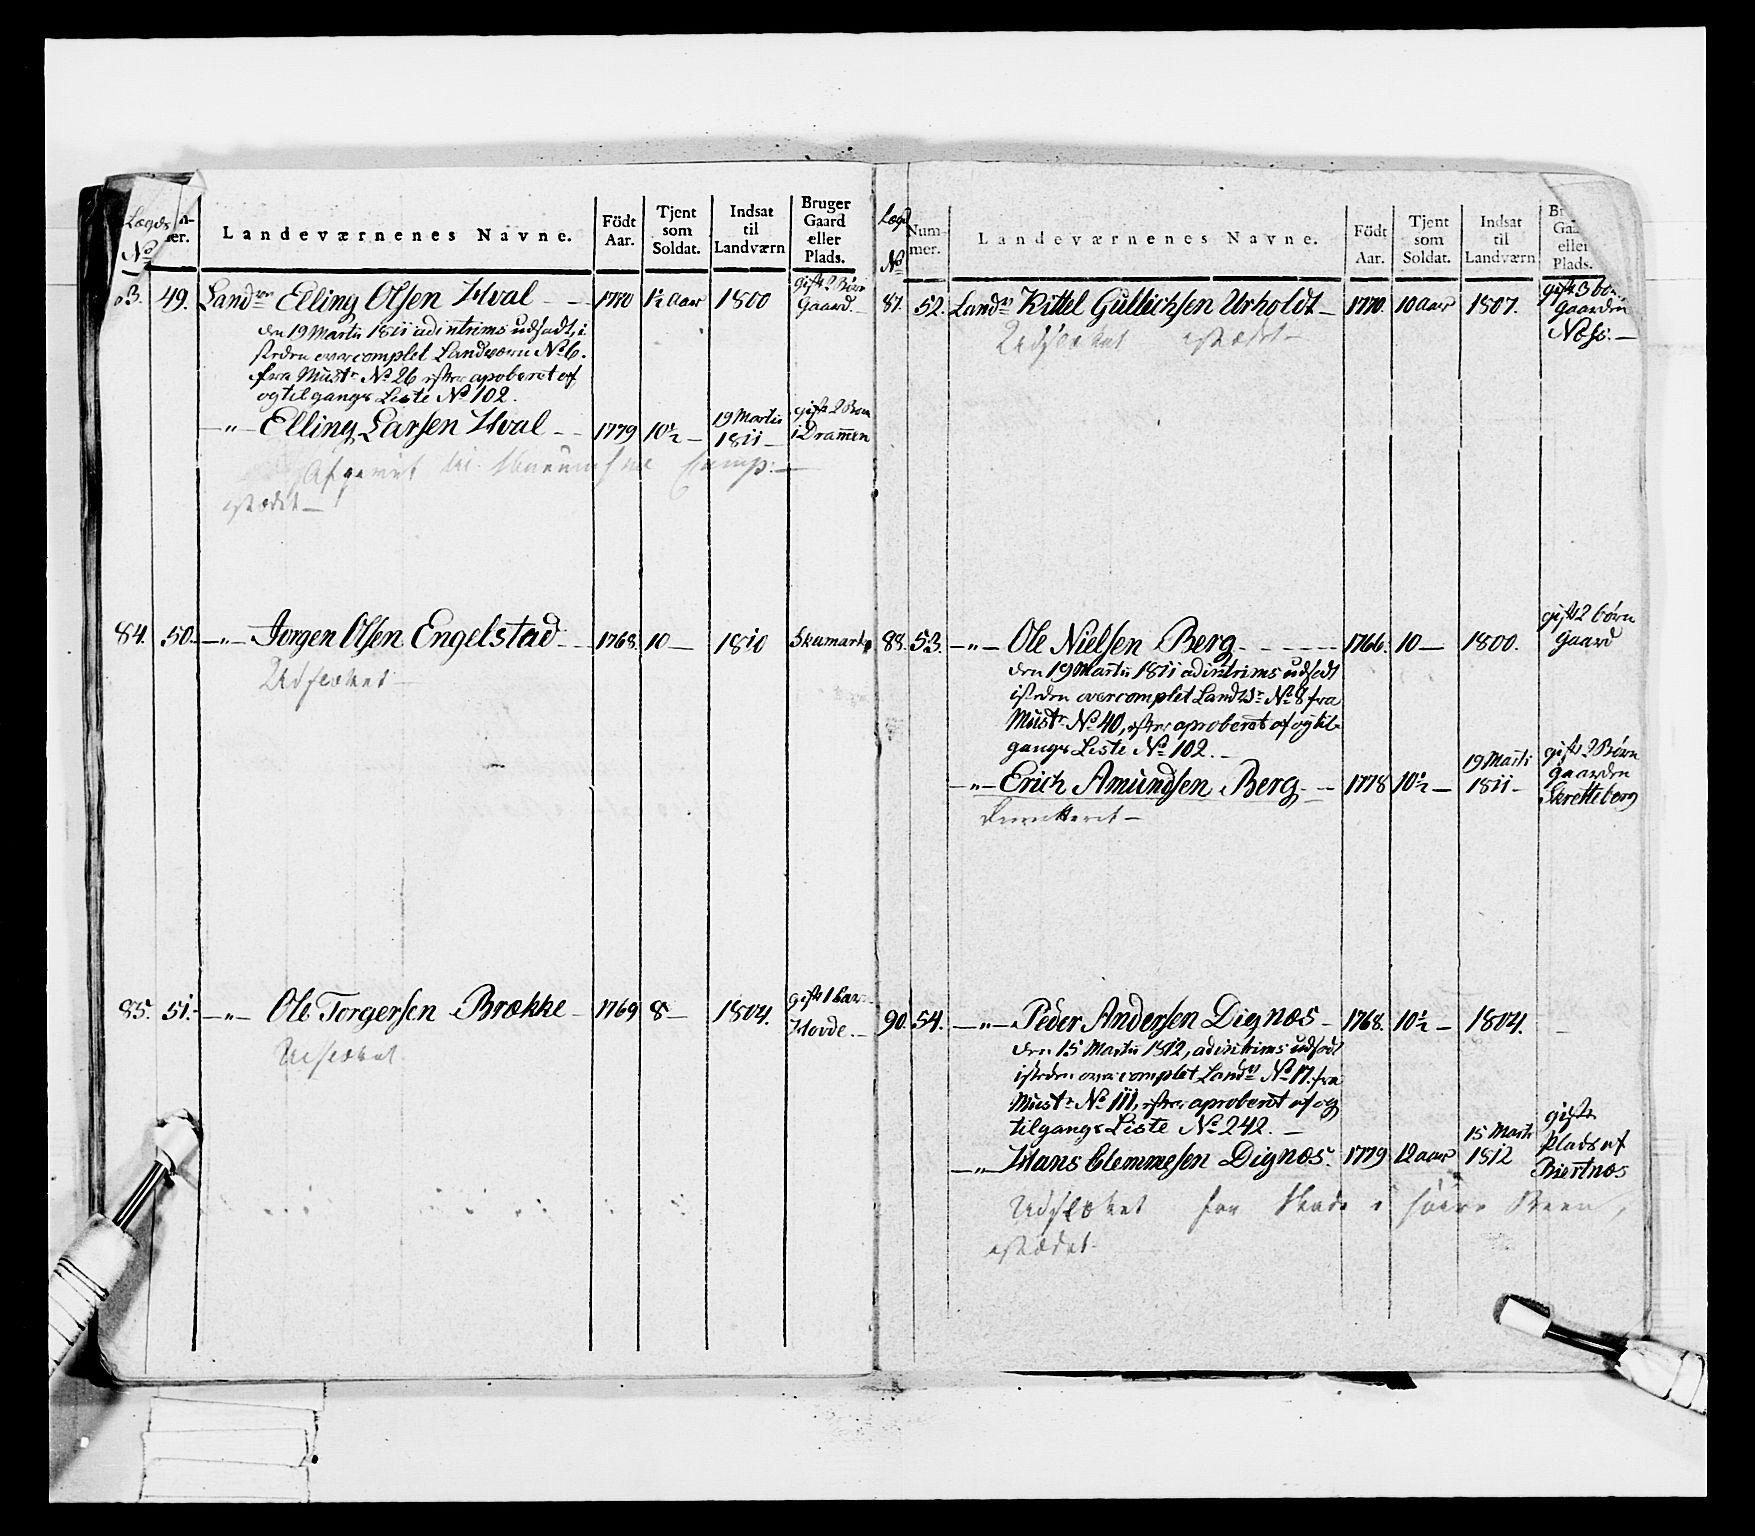 Lægds
No
Landeværnenes Navne.
Födt
Aar.
Tjent
som
Soldat.
Indsat
til
Landværn
Bruger
Gaard
eller
Plads.
49. Landvn Elling Olsen Hval 1770 1½ aar 1800 gift 2 Børn Gaard
den 19 Martii 1811 ad intrims udsadt, i
steden overcomplet Landværn No 6.
fra Mustr No 26 efter aproberet af
og tilgangs Liste No 102.
-"- Elling Larsen Hval 1779 10½ 19 Martii 1811 gift 2 Børn i Drammen
Afgevit til Comp:
84. 50. -"- Jorgen Olsen Engelstad 1768 10 1810 Skumark
Udslættet
85. 51. -"- Ole Torgersen Brække 1769 8 1804. gift 1 Barn Hovde.
Udslættet
Lægd
No
Num-
mer.
Landeværnenes Navne.
Födt
Aar.
Tjent
som
Soldat.
Indsat
til
Landværn
eller
Plads.
87. 52. Landvn Kittel Gullichsen Urholdt 1770. 10 aar 1807. gift 3 børn Gaarden Næss.
Udslættet
88. 53. -"- Ole Nielsen Berg 1766. 10 1800. gift 2 børn Gaard
den 19 Martii 1811 ad intrims udsadt
isteden overcomplet Landvr No 8 fra
Mustr No 40, efter aproberet af og til-
gangs Liste No 102.
-"- Erich Amundsen Berg 1778 10½ 19 Martii 1811 gift 2 Børn Gaarden Skretteberg
90. 54. -"- Peder Andersen Dignæs 1768. 10½ 1804.
den 15 Martii 1812, ad intrims udsadt
isteden overcomplet Landvn No 17. fra
Mustr No 111, efter aproberet af og
tilgangs Liste No 242.
-"- Hans Clemmesen Dignæs. 1779 12 aar 15 Martii 1812 gift Plads af Biertnæs
Udslættet for Skade i høire Been,